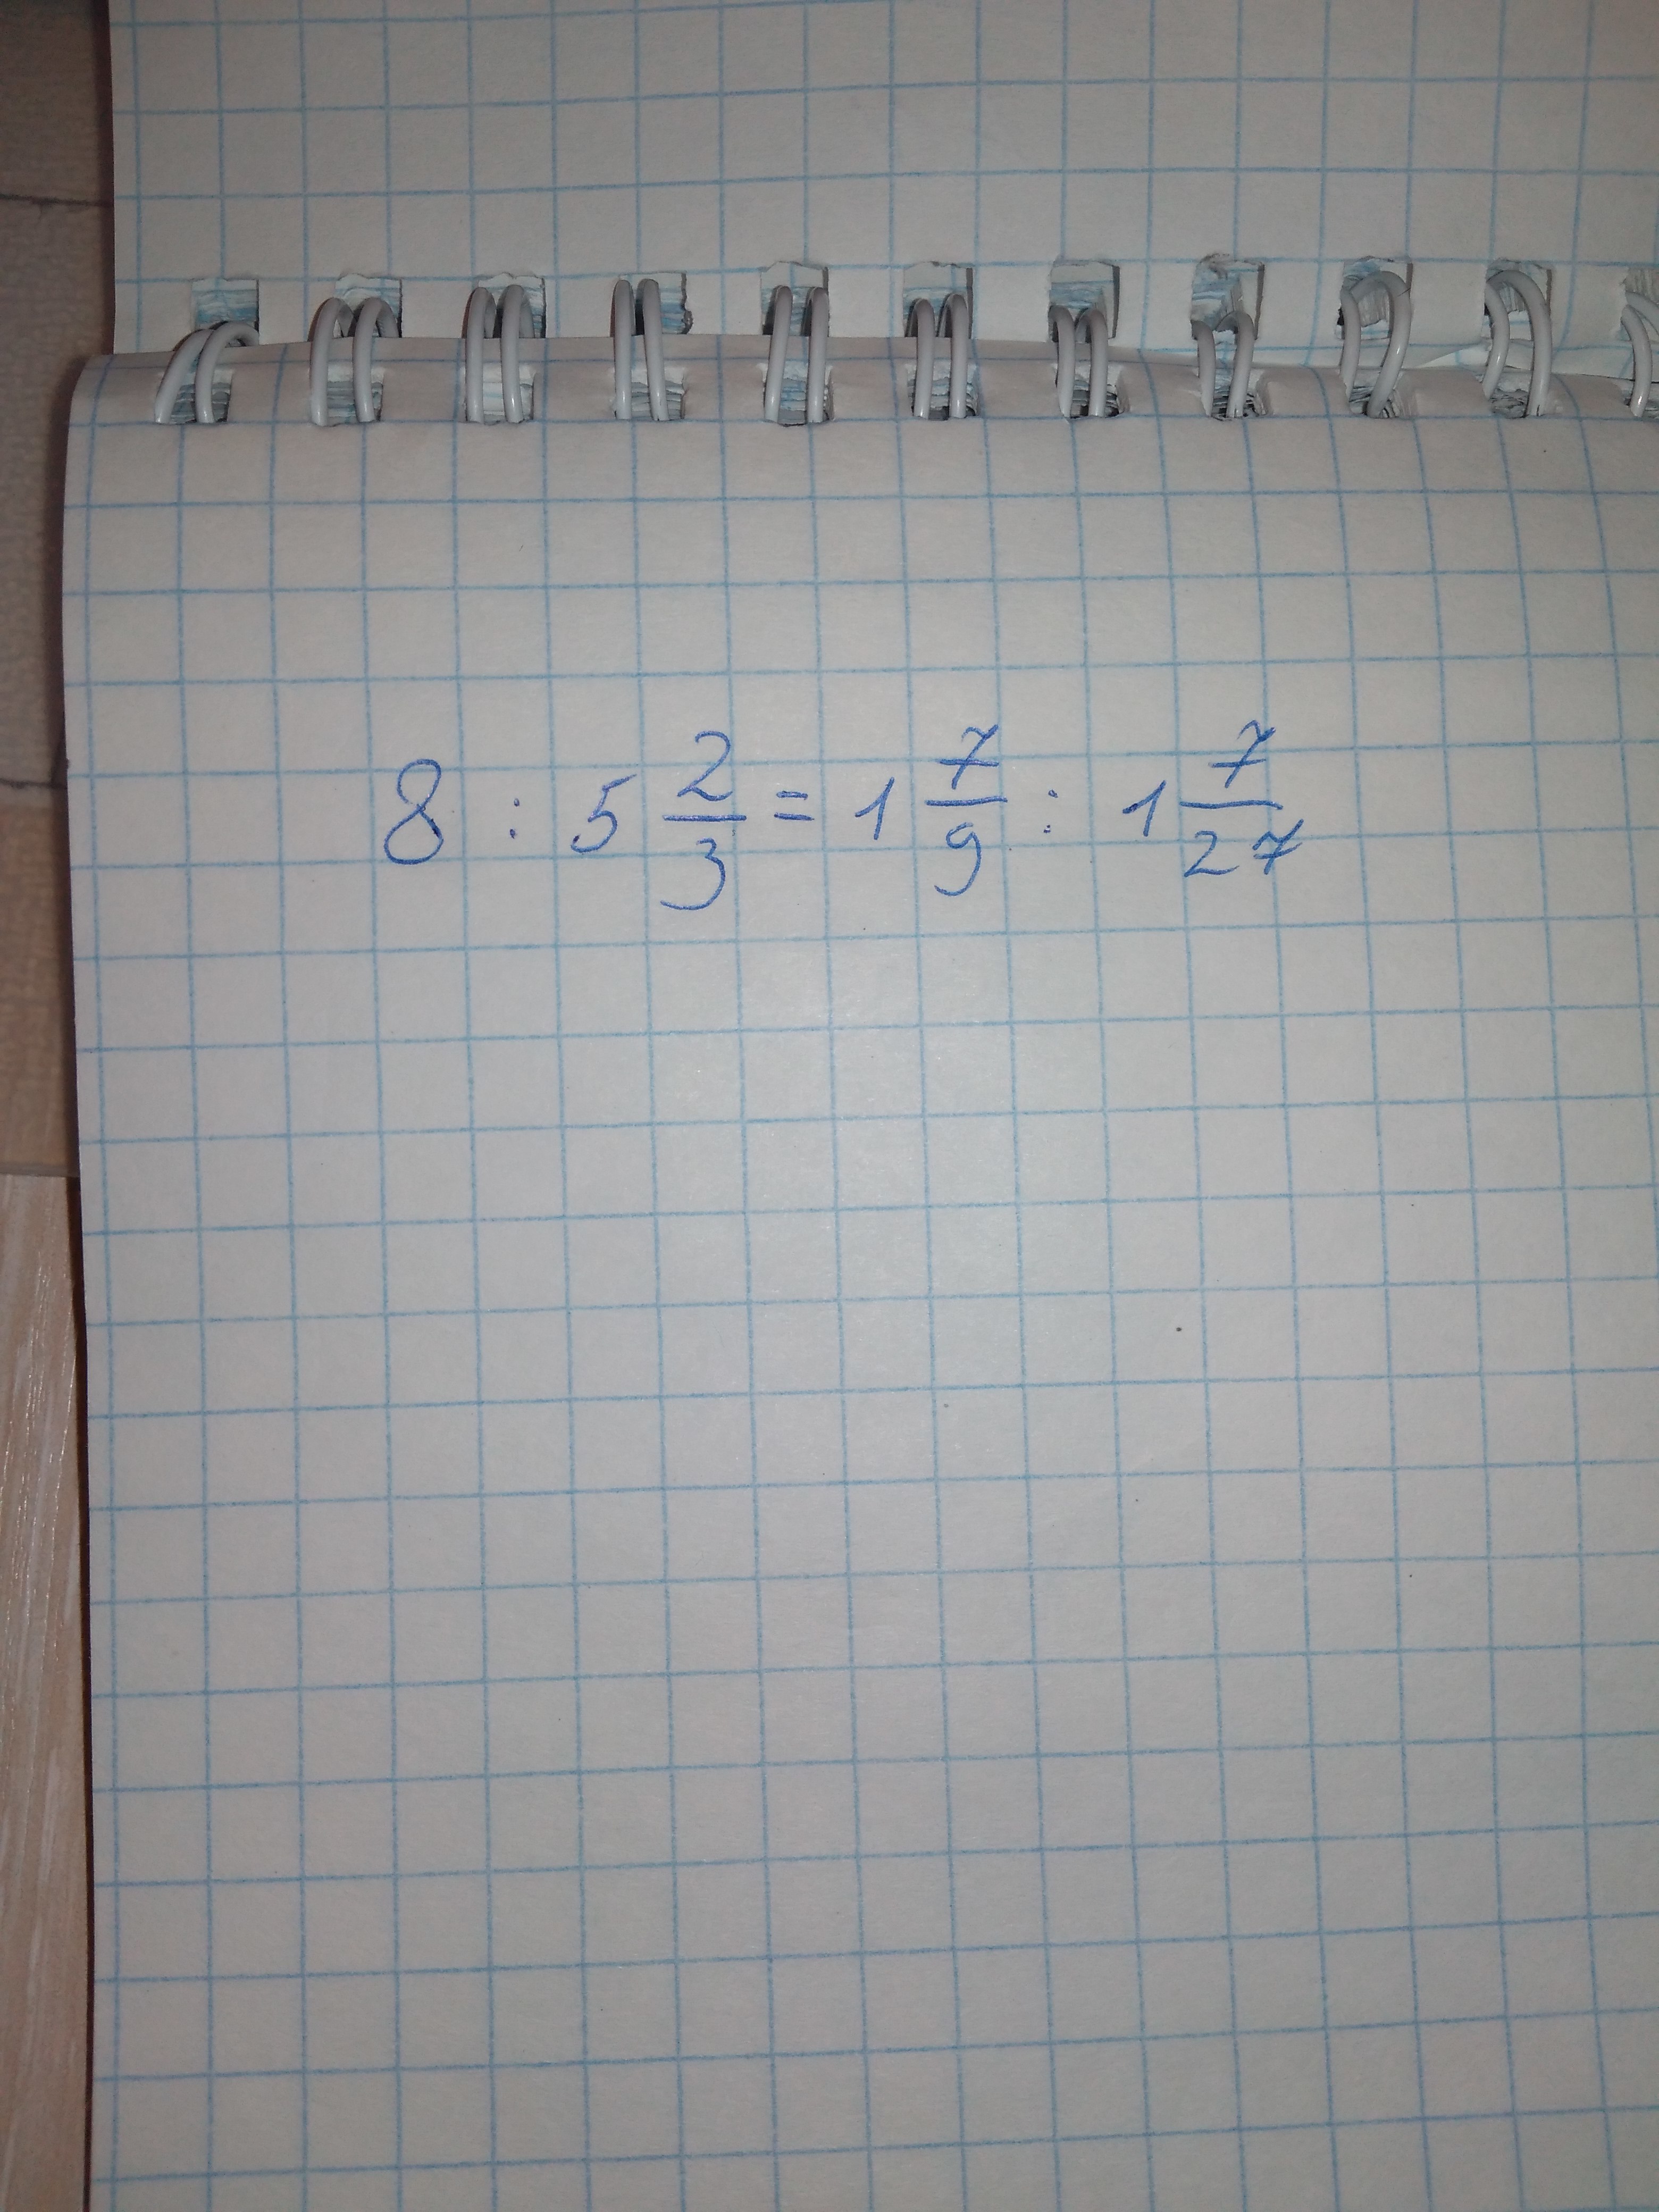 8 : 5 2/3 = 1 7/9 : 1 7/27